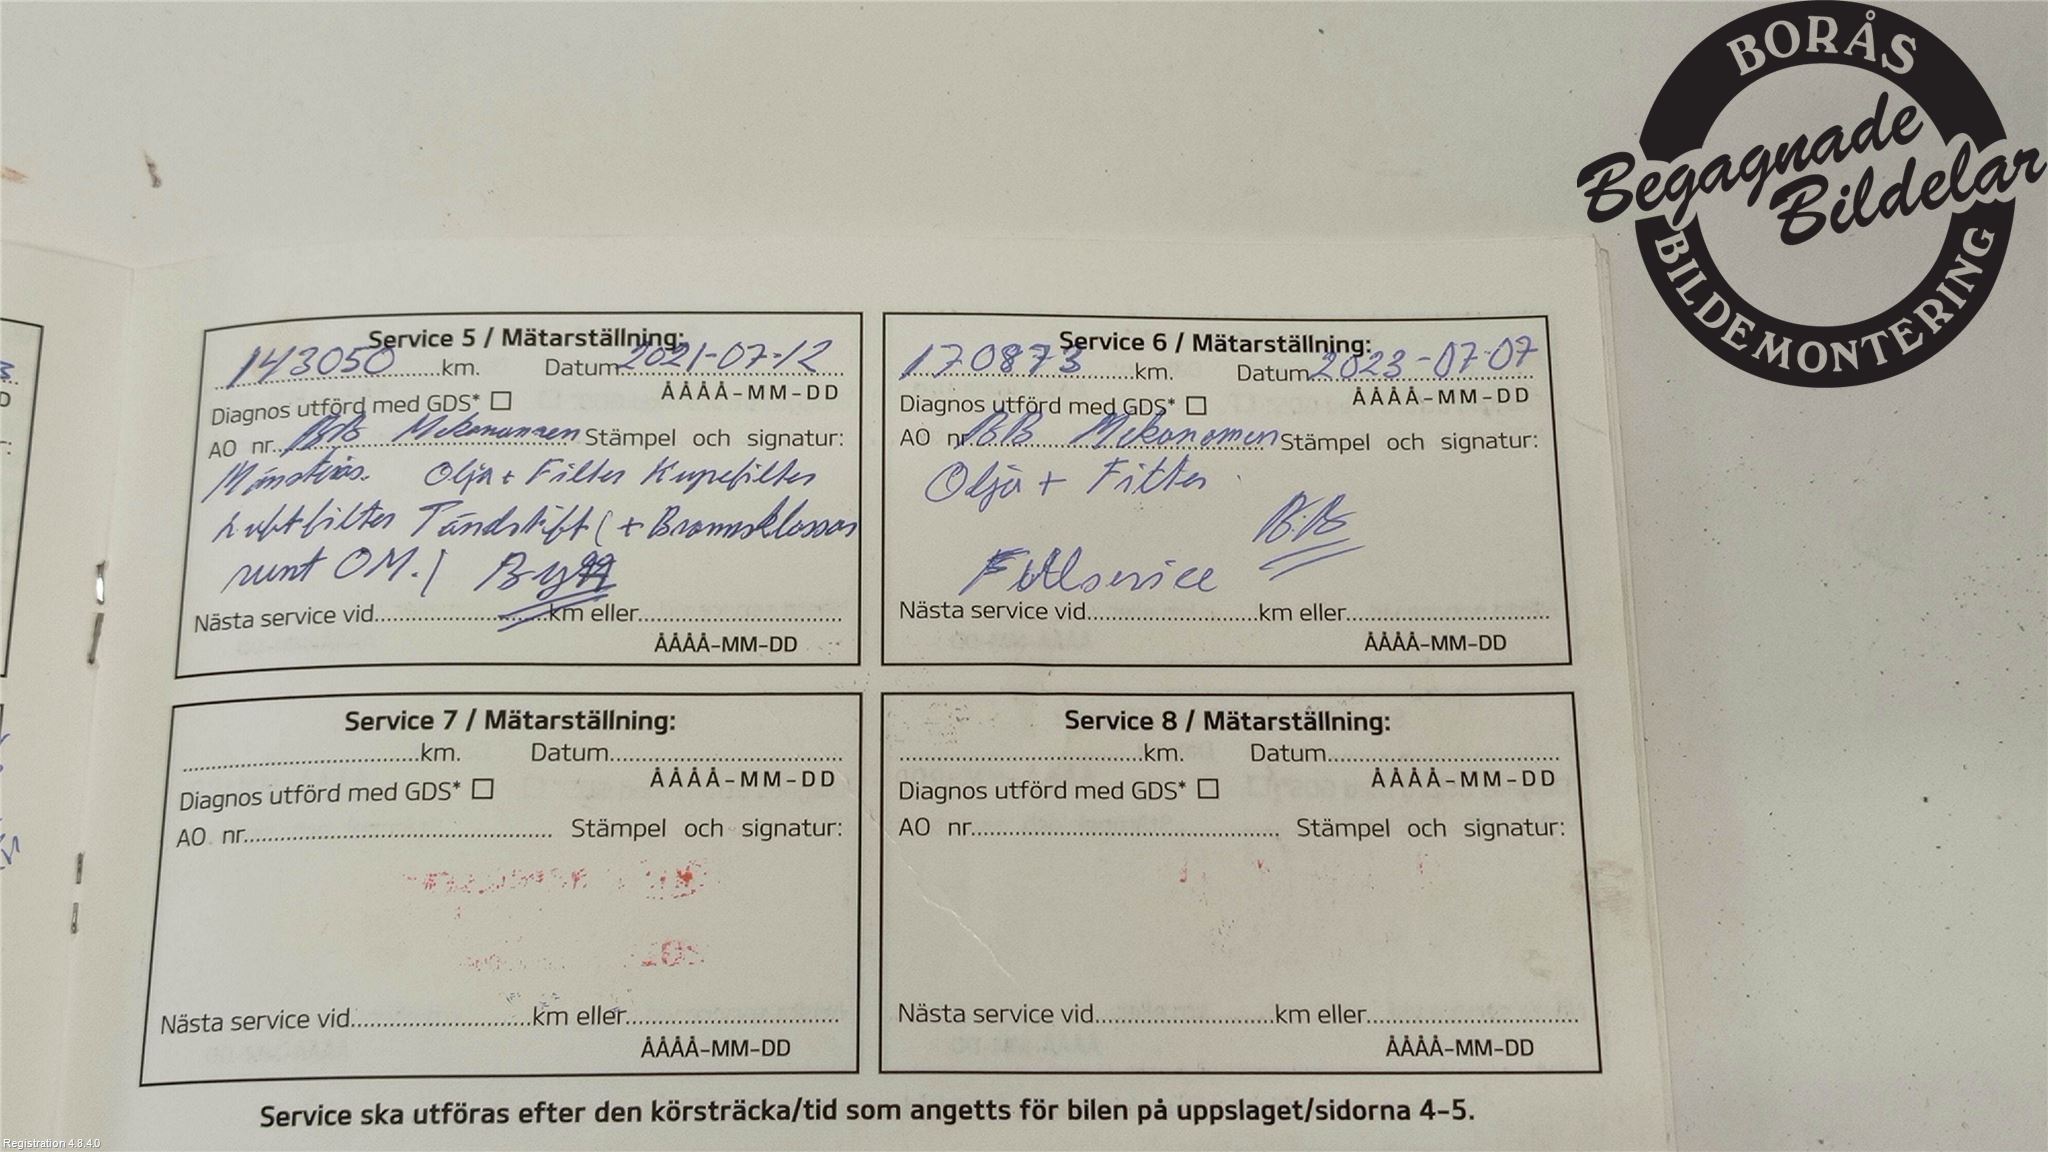 BORÅS
Begagnade
Bildelar
BILDEMONTERING
Service 5 / Mätarställning:
143050 km. Datum 2021-07-12
ÅÅÅÅ-MM-DD
Diagnos utförd med GDS*
AO nr. BB Mekonomen Stämpel och signatur:
Mönsterås. Olja + Filter Kupefilter
Luftfilter Tändstift (+ Bromsklossar
runt OM.)
Nästa service vid km eller
ÅÅÅÅ-MM-DD
Service 6 / Mätarställning:
170873 km. Datum 2023-07-07
ÅÅÅÅ-MM-DD
Diagnos utförd med GDS*
AO nr. BB Mekonomen Stämpel och signatur:
Olja + Filter
BB
Fullservice
Nästa service vid km eller
ÅÅÅÅ-MM-DD
Service 7 / Mätarställning:
km. Datum
ÅÅÅÅ-MM-DD
Diagnos utförd med GDS*
AO nr. Stämpel och signatur:
Nästa service vid km eller
ÅÅÅÅ-MM-DD
Service 8 / Mätarställning:
km. Datum
ÅÅÅÅ-MM-DD
Diagnos utförd med GDS*
AO nr. Stämpel och signatur:
Nästa service vid km eller
ÅÅÅÅ-MM-DD
Service ska utföras efter den körsträcka/tid som angetts för bilen på uppslaget/sidorna 4-5.
Registration 4.8.4.0